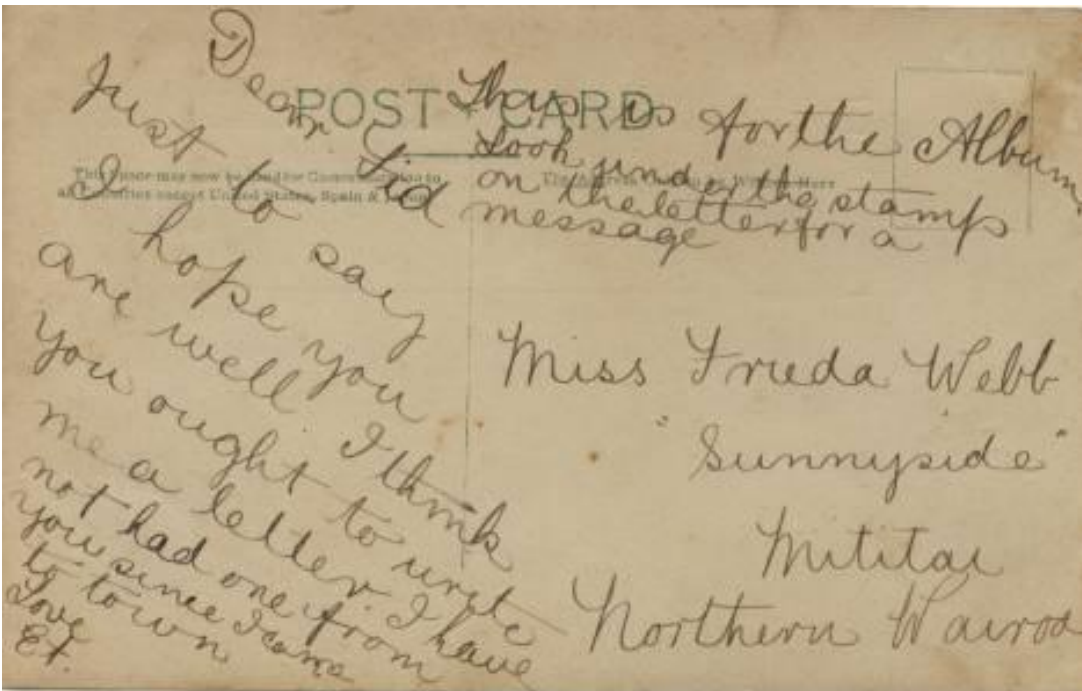 POST CARD
This Space may now be used for Communication to
all Countries except United States, Spain & Japan
The Address to be Written Here
Dear Sid
Just to say
I hope you
are well I think
you ought to write
me a letter. I have
not had one from
you since I came
to town
Love
Et.
This is for the Album
Look under the stamps
on the letter for a
message
Miss Frieda Webb
"Sunnyside"
Mititai
Northern Wairoa